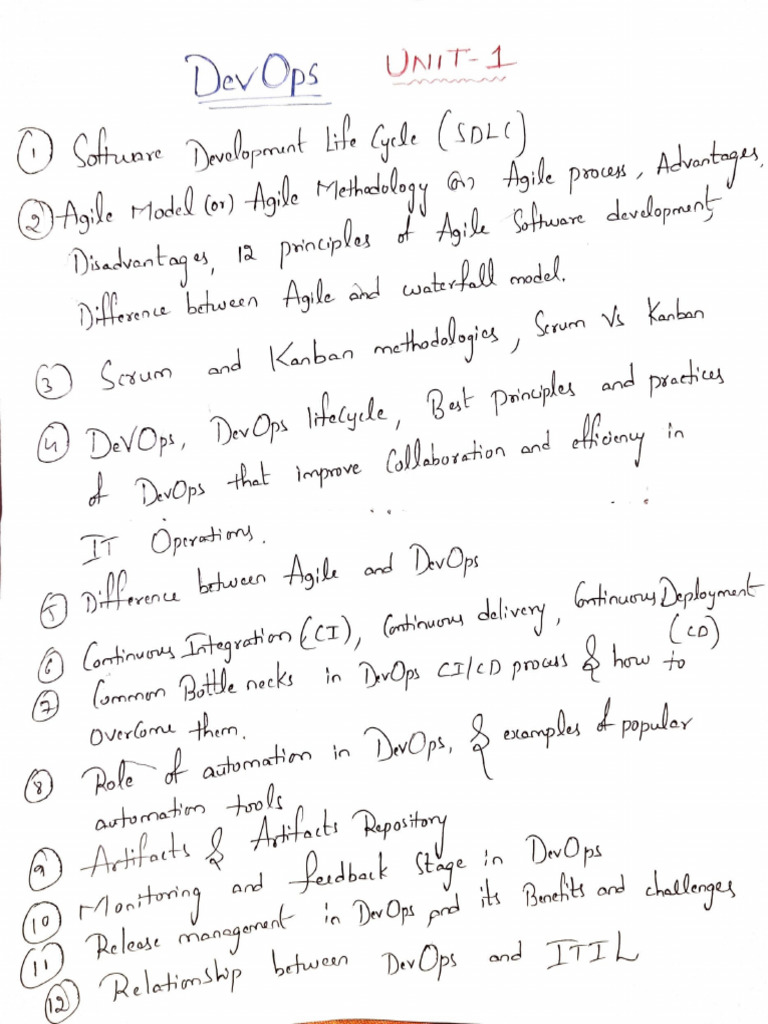 DevOps UNIT-1
① Software Development Life Cycle (SDLC)
② Agile Model (or) Agile Methodology (or) Agile process, Advantages,
Disadvantages, 12 principles of Agile Software development,
Difference between Agile and waterfall model.
③ Scrum and Kanban methodologies, Scrum Vs Kanban
④ DevOps, DevOps lifecycle, Best principles and practices
of DevOps that improve Collaboration and efficiency in
IT Operations.
⑤ Difference between Agile and DevOps
⑥ Continuous Integration (CI), Continuous delivery, Continuous Deployment
(CD)
⑦ Common Bottle necks in DevOps CI/CD process & how to
overcome them.
⑧ Role of automation in DevOps, & examples of popular
automation tools
⑨ Artifacts & Artifacts Repository
⑩ Monitoring and feedback Stage in DevOps
⑪ Release management in DevOps and its Benefits and challenges
⑫ Relationship between DevOps and ITIL